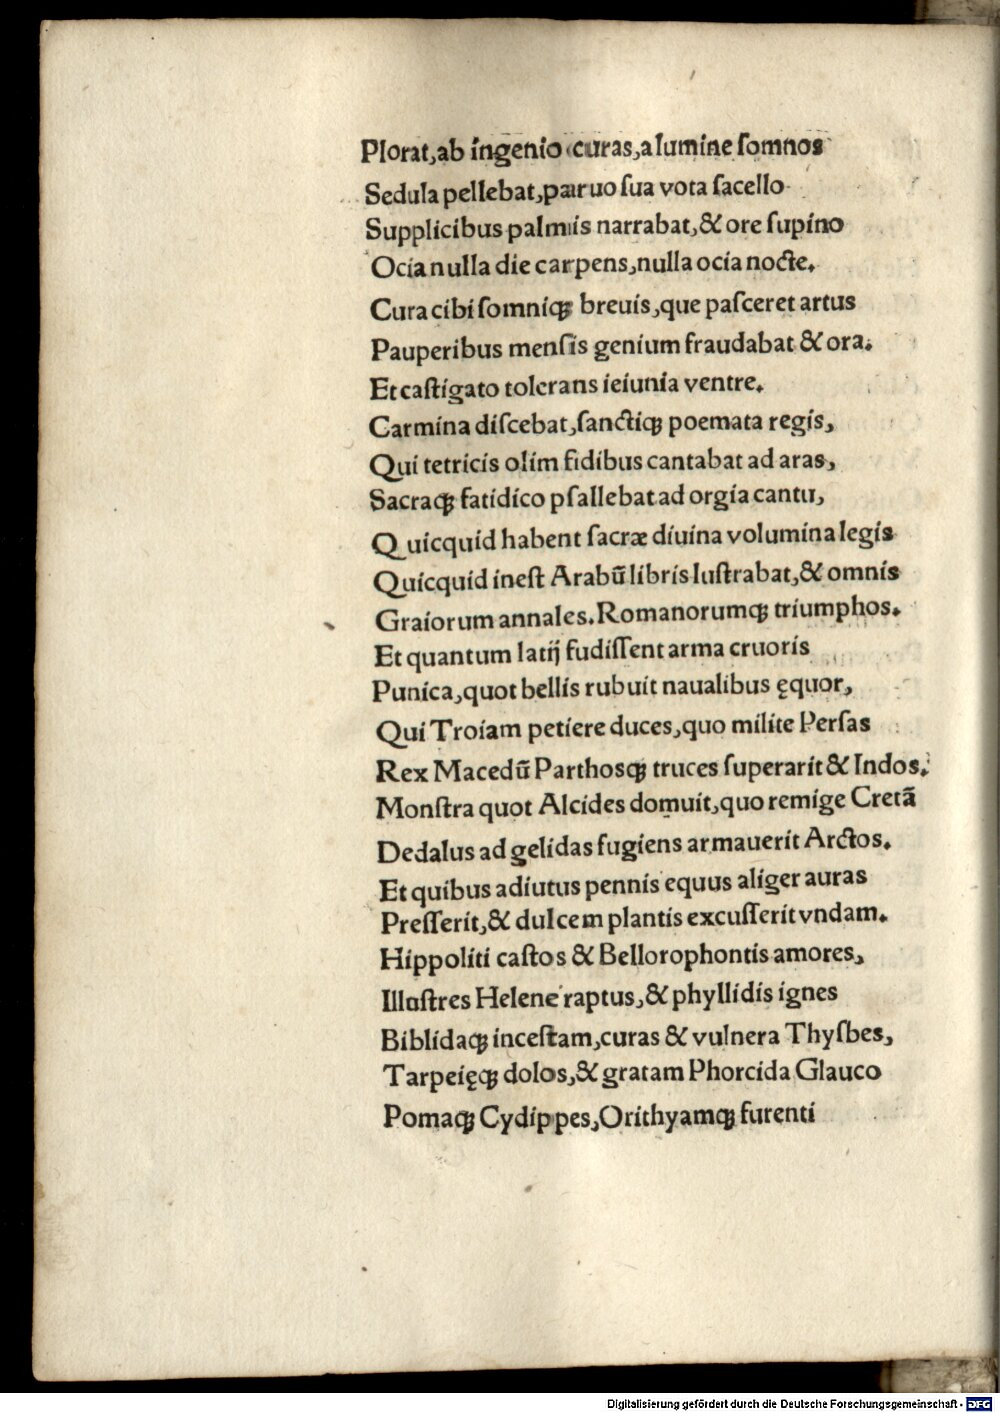 Plorat,ab ingenio curas,a lumine ſomnos
Sedula pellebat,paruo ſua vota ſacello
Supplicibus palmis narrabat,& ore ſupino
Ocia nulla die carpens,nulla ocia nocte.
Cura cibi ſomniqꝫ breuis,que paſceret artus
Pauperibus menſis genium fraudabat & ora.
Et caſtigato tolerans ieiunia ventre.
Carmina diſcebat,ſanctiqꝫ poemata regis,
Qui tetricis olim fidibus cantabat ad aras,
Sacraqꝫ fatidico pſallebat ad orgia cantu,
Quicquid habent ſacræ diuina volumina legis
Quicquid ineſt Arabū libris luſtrabat,& omnis
Graiorum annales.Romanorumqꝫ triumphos.
Et quantum latij fudiſſent arma cruoris
Punica,quot bellis rubuit naualibus ęquor,
Qui Troiam petiere duces,quo milite Perſas
Rex Macedū Parthosqꝫ truces ſuperarit & Indos.
Monſtra quot Alcides domuit,quo remige Cretā
Dedalus ad gelidas fugiens armauerit Arctos.
Et quibus adiutus pennis equus aliger auras
Preſſerit,& dulcem plantis excuſſerit vndam.
Hippoliti caſtos & Bellorophontis amores,
Illuſtres Helene raptus,& phyllidis ignes
Biblidaqꝫ inceſtam,curas & vulnera Thyſbes,
Tarpeięqꝫ dolos,& gratam Phorcida Glauco
Pomaqꝫ Cydippes,Orithyamqꝫ furenti
Digitalisierung gefördert durch die Deutsche Forschungsgemeinschaft - DFG